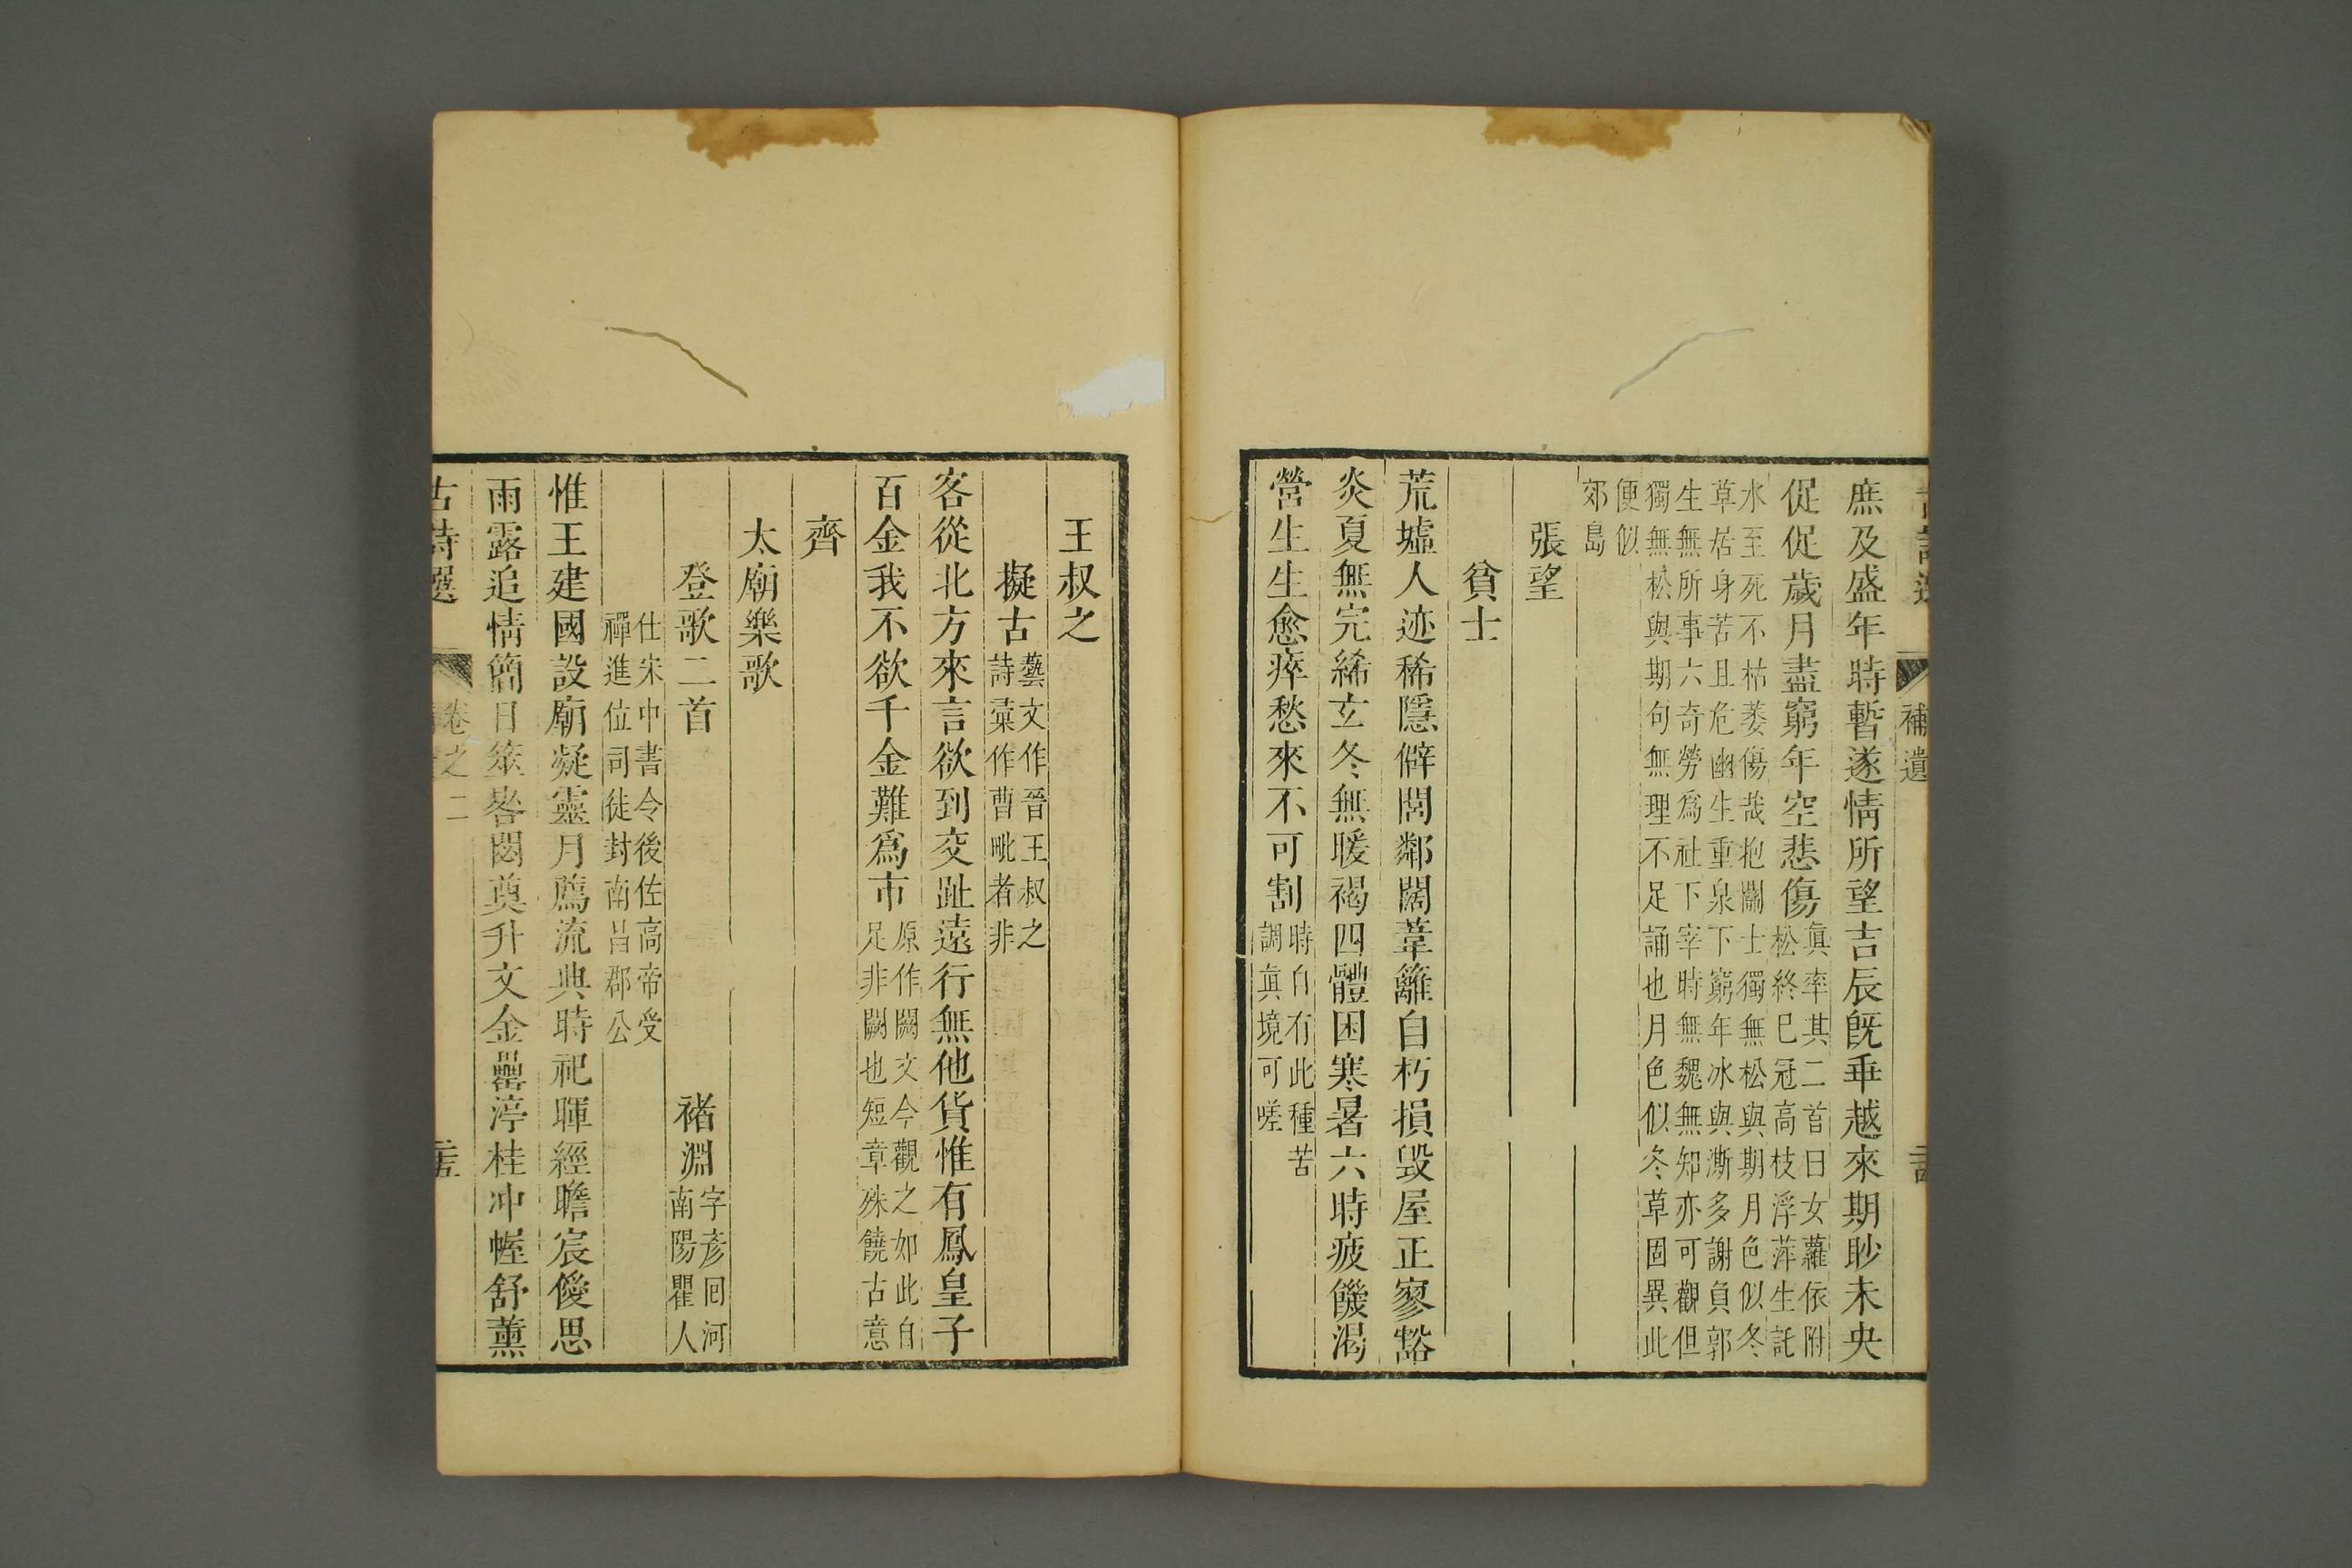 庶及盛年時暫遂情所望吉辰旣乖越來期眇未央
促促歲月盡窮年空悲傷
眞率其二首曰女蘿依附
松終巳冠高枝浮萍生託
水至死不枯萎傷哉抱關士獨無松與期月色似冬
草居身苦且危幽生重泉下窮年冰與澌多謝負郭
生無所事六奇勞爲社下宰時無魏無知亦可觀但
獨無松與期句無理不足誦也月色似冬草固異此
便似
郊島
張望
貧士
荒墟人迹稀隱僻閭鄰闊葦籬自朽損毀屋正寥豁
炎夏無完絺玄冬無暖褐四體困寒暑六時疲饑渴
營生生愈瘁愁來不可割
時自有此種苦
調眞境可嗟
補遺
王叔之
擬古
藝文作晉王叔之
詩彙作曹毗者非
客從北方來言欲到交趾遠行無他貨惟有鳳皇子
百金我不欲千金難爲市
原作闕文今觀之如此自
足非闕也短章殊饒古意
齊
太廟樂歌
登歌二首
褚淵
字彥回河
南陽瞿人
仕宋中書令後佐高帝受
禪進位司徒封南昌郡公
惟王建國設廟凝靈月薦流典時祀暉經瞻宸僾思
雨露追情簡日筮晷閟奠升文金罍渟桂冲幄舒薰
古詩選
卷之二